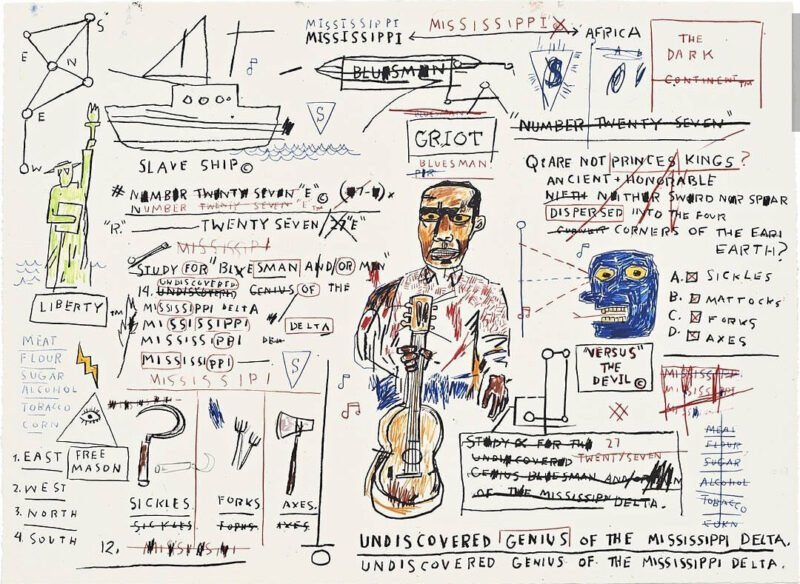 S
E
N
E
W
MISSISSIPPI
MISSISSIPPI
MISSISSIPPI'X
AFRICA
THE
DARK
CONTINENT™
BLUESMAN
S
S
GRIOT
BLUESMAN
"NUMBER TWENTY SEVEN"
SLAVE SHIP©
# NUMBER TWENTY SEVEN "E"©
NUMBER TWENTY SEVEN "E"™
"R." TWENTY SEVEN/27"E"
MISSISIPI
STUDY FOR "BLUESMAN AND/OR MEN"
UNDISCOVERED
14. UNDISCOVERED GENIUS OF THE
MISSISSIPPI DELTA
MISSISSIPPI DELTA
MISSISSIPPI
MISSISSIPPI
MISSISSIPPI
S
LIBERTY™
MEAT
FLOUR
SUGAR
ALCOHOL
TOBACCO
CORN
FREE
MASON
1. EAST
2. WEST
3. NORTH
4. SOUTH
SICKLES. FORKS. AXES.
SICKLES FORKS. AXES
12. MISSISSIPPI
Q: ARE NOT PRINCES KINGS?
ANCIENT + HONORABLE
NIETH NEITHER SWORD NOR SPEAR
DISPERSED INTO THE FOUR
CORNERS OF THE EAR
EARTH?
A. SICKLES
B. MATTOCKS
C. FORKS
D. AXES
"VERSUS"
THE
DEVIL©
MISSISSIPPI
STUDY FOR THE 27
UNDISCOVERED TWENTYSEVEN
GENIUS BLUESMAN AND/OR
OF THE MISSISSIPPI DELTA.
MEAT
FLOUR
SUGAR
ALCOHOL
TOBACCO
CORN
UNDISCOVERED GENIUS OF THE MISSISSIPPI DELTA.
UNDISCOVERED GENIUS OF THE MISSISSIPPI DELTA.